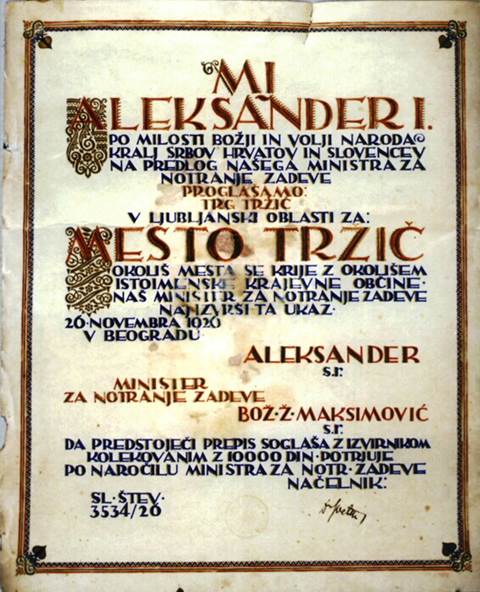 MI
ALEKSANDER I.
PO MILOSTI BOŽJI IN VOLJI NARODA
KRALJ SRBOV HRVATOV IN SLOVENCEV
NA PREDLOG NAŠEGA MINISTRA ZA
NOTRANJE ZADEVE
PROGLAŠAMO:
TRG TRŽIČ
V LJUBLJANSKI OBLASTI ZA:
MESTO TRŽIČ
OKOLIŠ MESTA SE KRIJE Z OKOLIŠEM
ISTOIMENSKE KRAJEVNE OBČINE·
NAŠ MINISTER ZA NOTRANJE ZADEVE
NAJ IZVRŠI TA UKAZ·
26·NOVEMBRA 1926
V BEOGRADU
ALEKSANDER
s.r.
MINISTER
ZA NOTRANJE ZADEVE
BOŽ·Ž·MAKSIMOVIĆ
s.r.
DA PREDSTOJEČI PREPIS SOGLAŠA Z IZVIRNIKOM
KOLEKOVANIM Z 10000 DIN·POTRJUJE
PO NAROČILU MINISTRA ZA NOTR·ZADEVE
NAČELNIK:
SL·ŠTEV·
3534/26